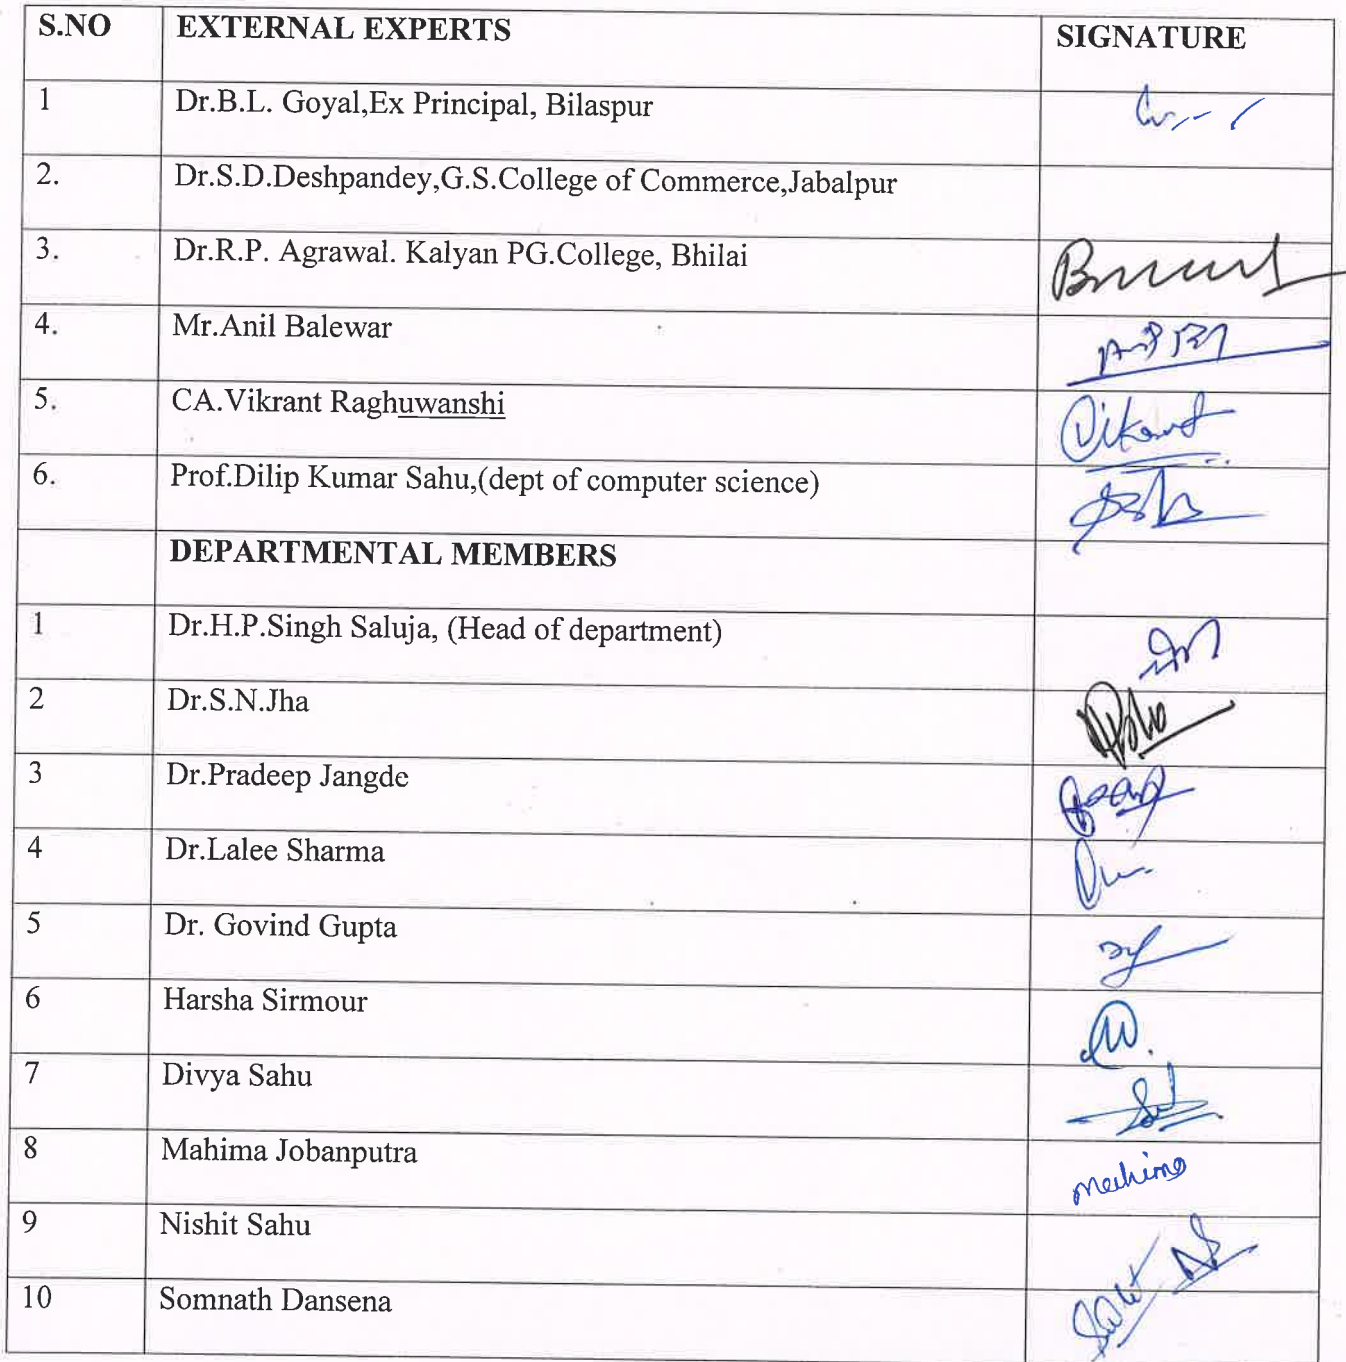 S.NO EXTERNAL EXPERTS SIGNATURE
1 Dr.B.L. Goyal,Ex Principal, Bilaspur
2. Dr.S.D.Deshpandey,G.S.College of Commerce,Jabalpur
3. Dr.R.P. Agrawal. Kalyan PG.College, Bhilai
4. Mr.Anil Balewar
5. CA.Vikrant Raghuwanshi Vikrant
6. Prof.Dilip Kumar Sahu,(dept of computer science)
DEPARTMENTAL MEMBERS
1 Dr.H.P.Singh Saluja, (Head of department)
2 Dr.S.N.Jha
3 Dr.Pradeep Jangde
4 Dr.Lalee Sharma
5 Dr. Govind Gupta
6 Harsha Sirmour
7 Divya Sahu
8 Mahima Jobanputra Mahima
9 Nishit Sahu
10 Somnath Dansena